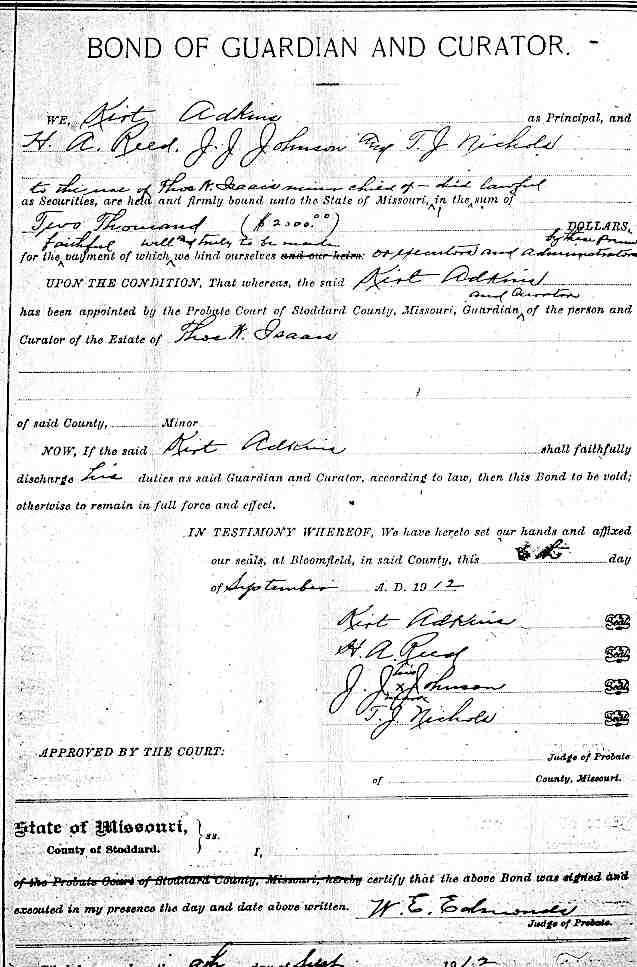 BOND OF GUARDIAN AND CURATOR.
WE, Kirt Adkins as Principal, and
H. A. Reed, J. J. Johnson and T. J. Nichols
to the use of Thos W. Isaacs minor child of
as Securities, are held and firmly bound unto the State of Missouri, in the sum of
Two Thousand ($2000.00) DOLLARS,
Faithful will truly to be made by these
for the payment of which we bind ourselves and our heirs or executors and administrators
UPON THE CONDITION, That whereas, the said Kirt Adkins
and Curator
has been appointed by the Probate Court of Stoddard County, Missouri, Guardian of the person and
Curator of the Estate of Thos W. Isaacs
of said County, Minor
NOW, If the said Kirt Adkins shall faithfully
discharge his duties as said Guardian and Curator, according to law, then this Bond to be void;
otherwise to remain in full force and effect.
IN TESTIMONY WHEREOF, We have hereto set our hands and affixed
our seals, at Bloomfield, in said County, this day
of September A. D. 1912
Kirt Adkins Seal
H. A. Reed Seal
J. J. x Johnson Seal
T. J. Nichols Seal
APPROVED BY THE COURT:
Judge of Probate
of County, Missouri.
State of Missouri, } ss.
County of Stoddard. I,
of the Probate Court of Stoddard County, Missouri, hereby certify that the above Bond was signed and
executed in my presence the day and date above written. W. E. Edmonds
Judge of Probate.
9th day of Sept 1912